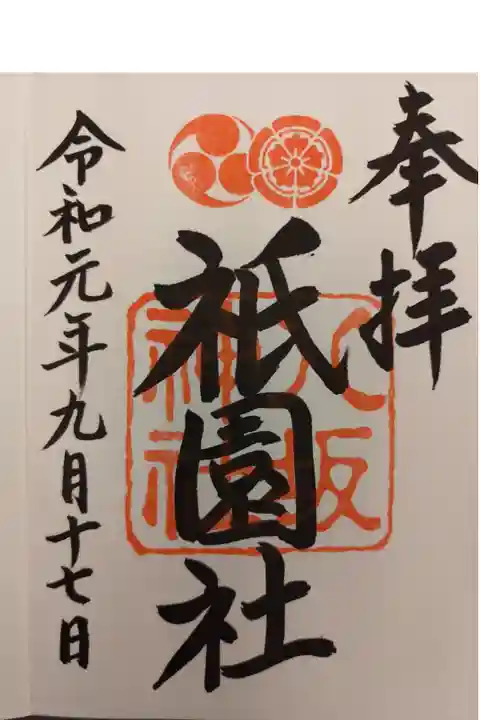 奉拝
祇園社
八坂
神社
令和元年九月十七日